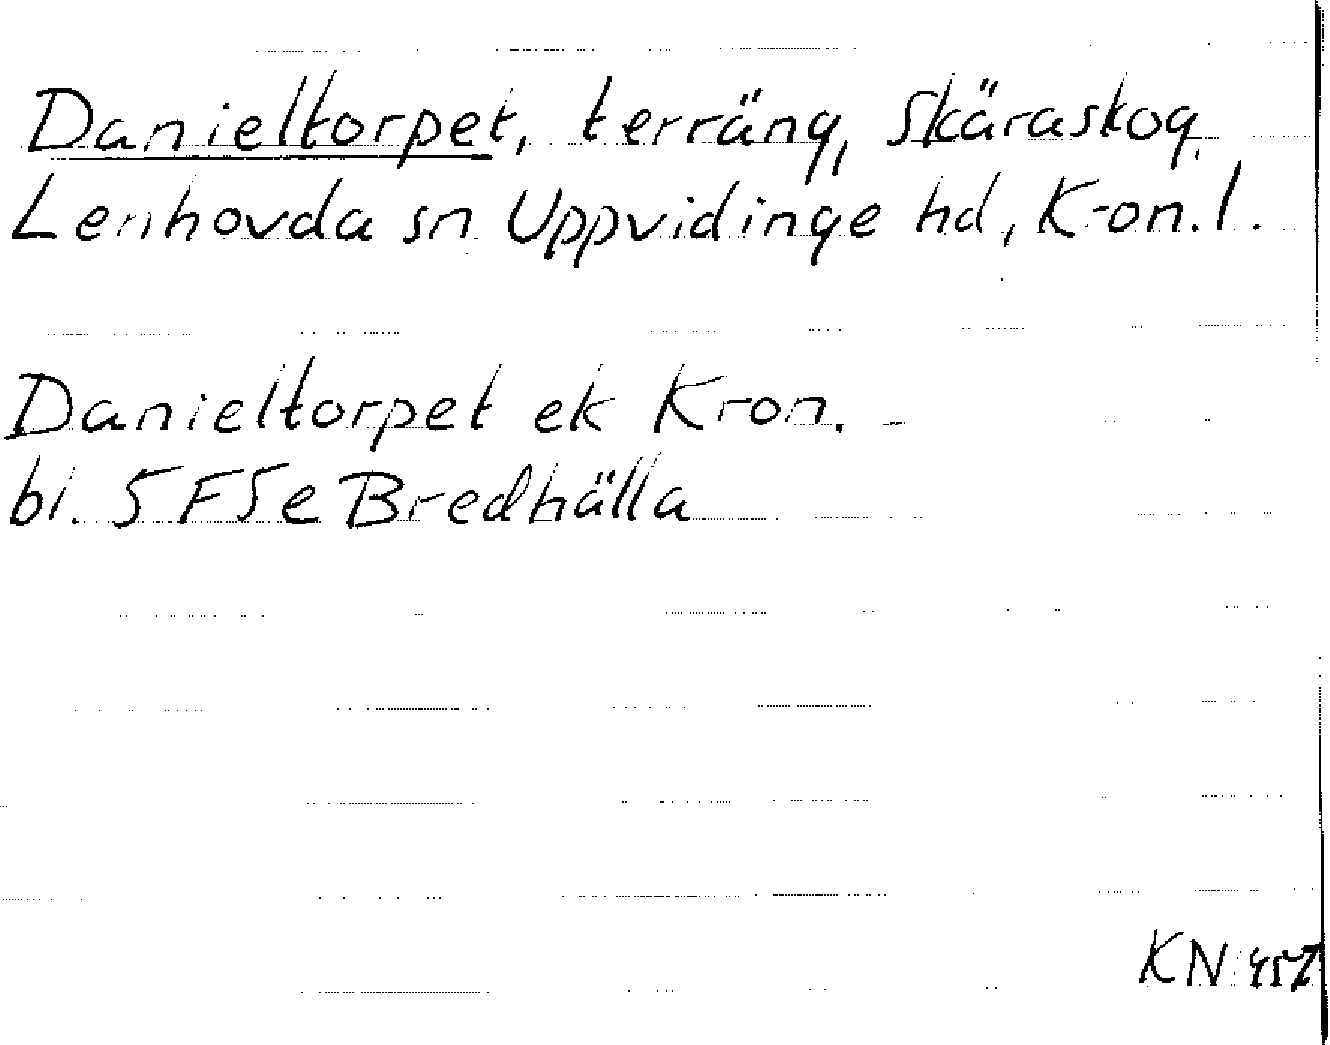 Danieltorpet, terräng, Skäraskog,
Lenhovda sn Uppvidinge hd, Kron. l.
Danieltorpet ek Kron. -
bl. 5F5e Bredhälla
KN 457